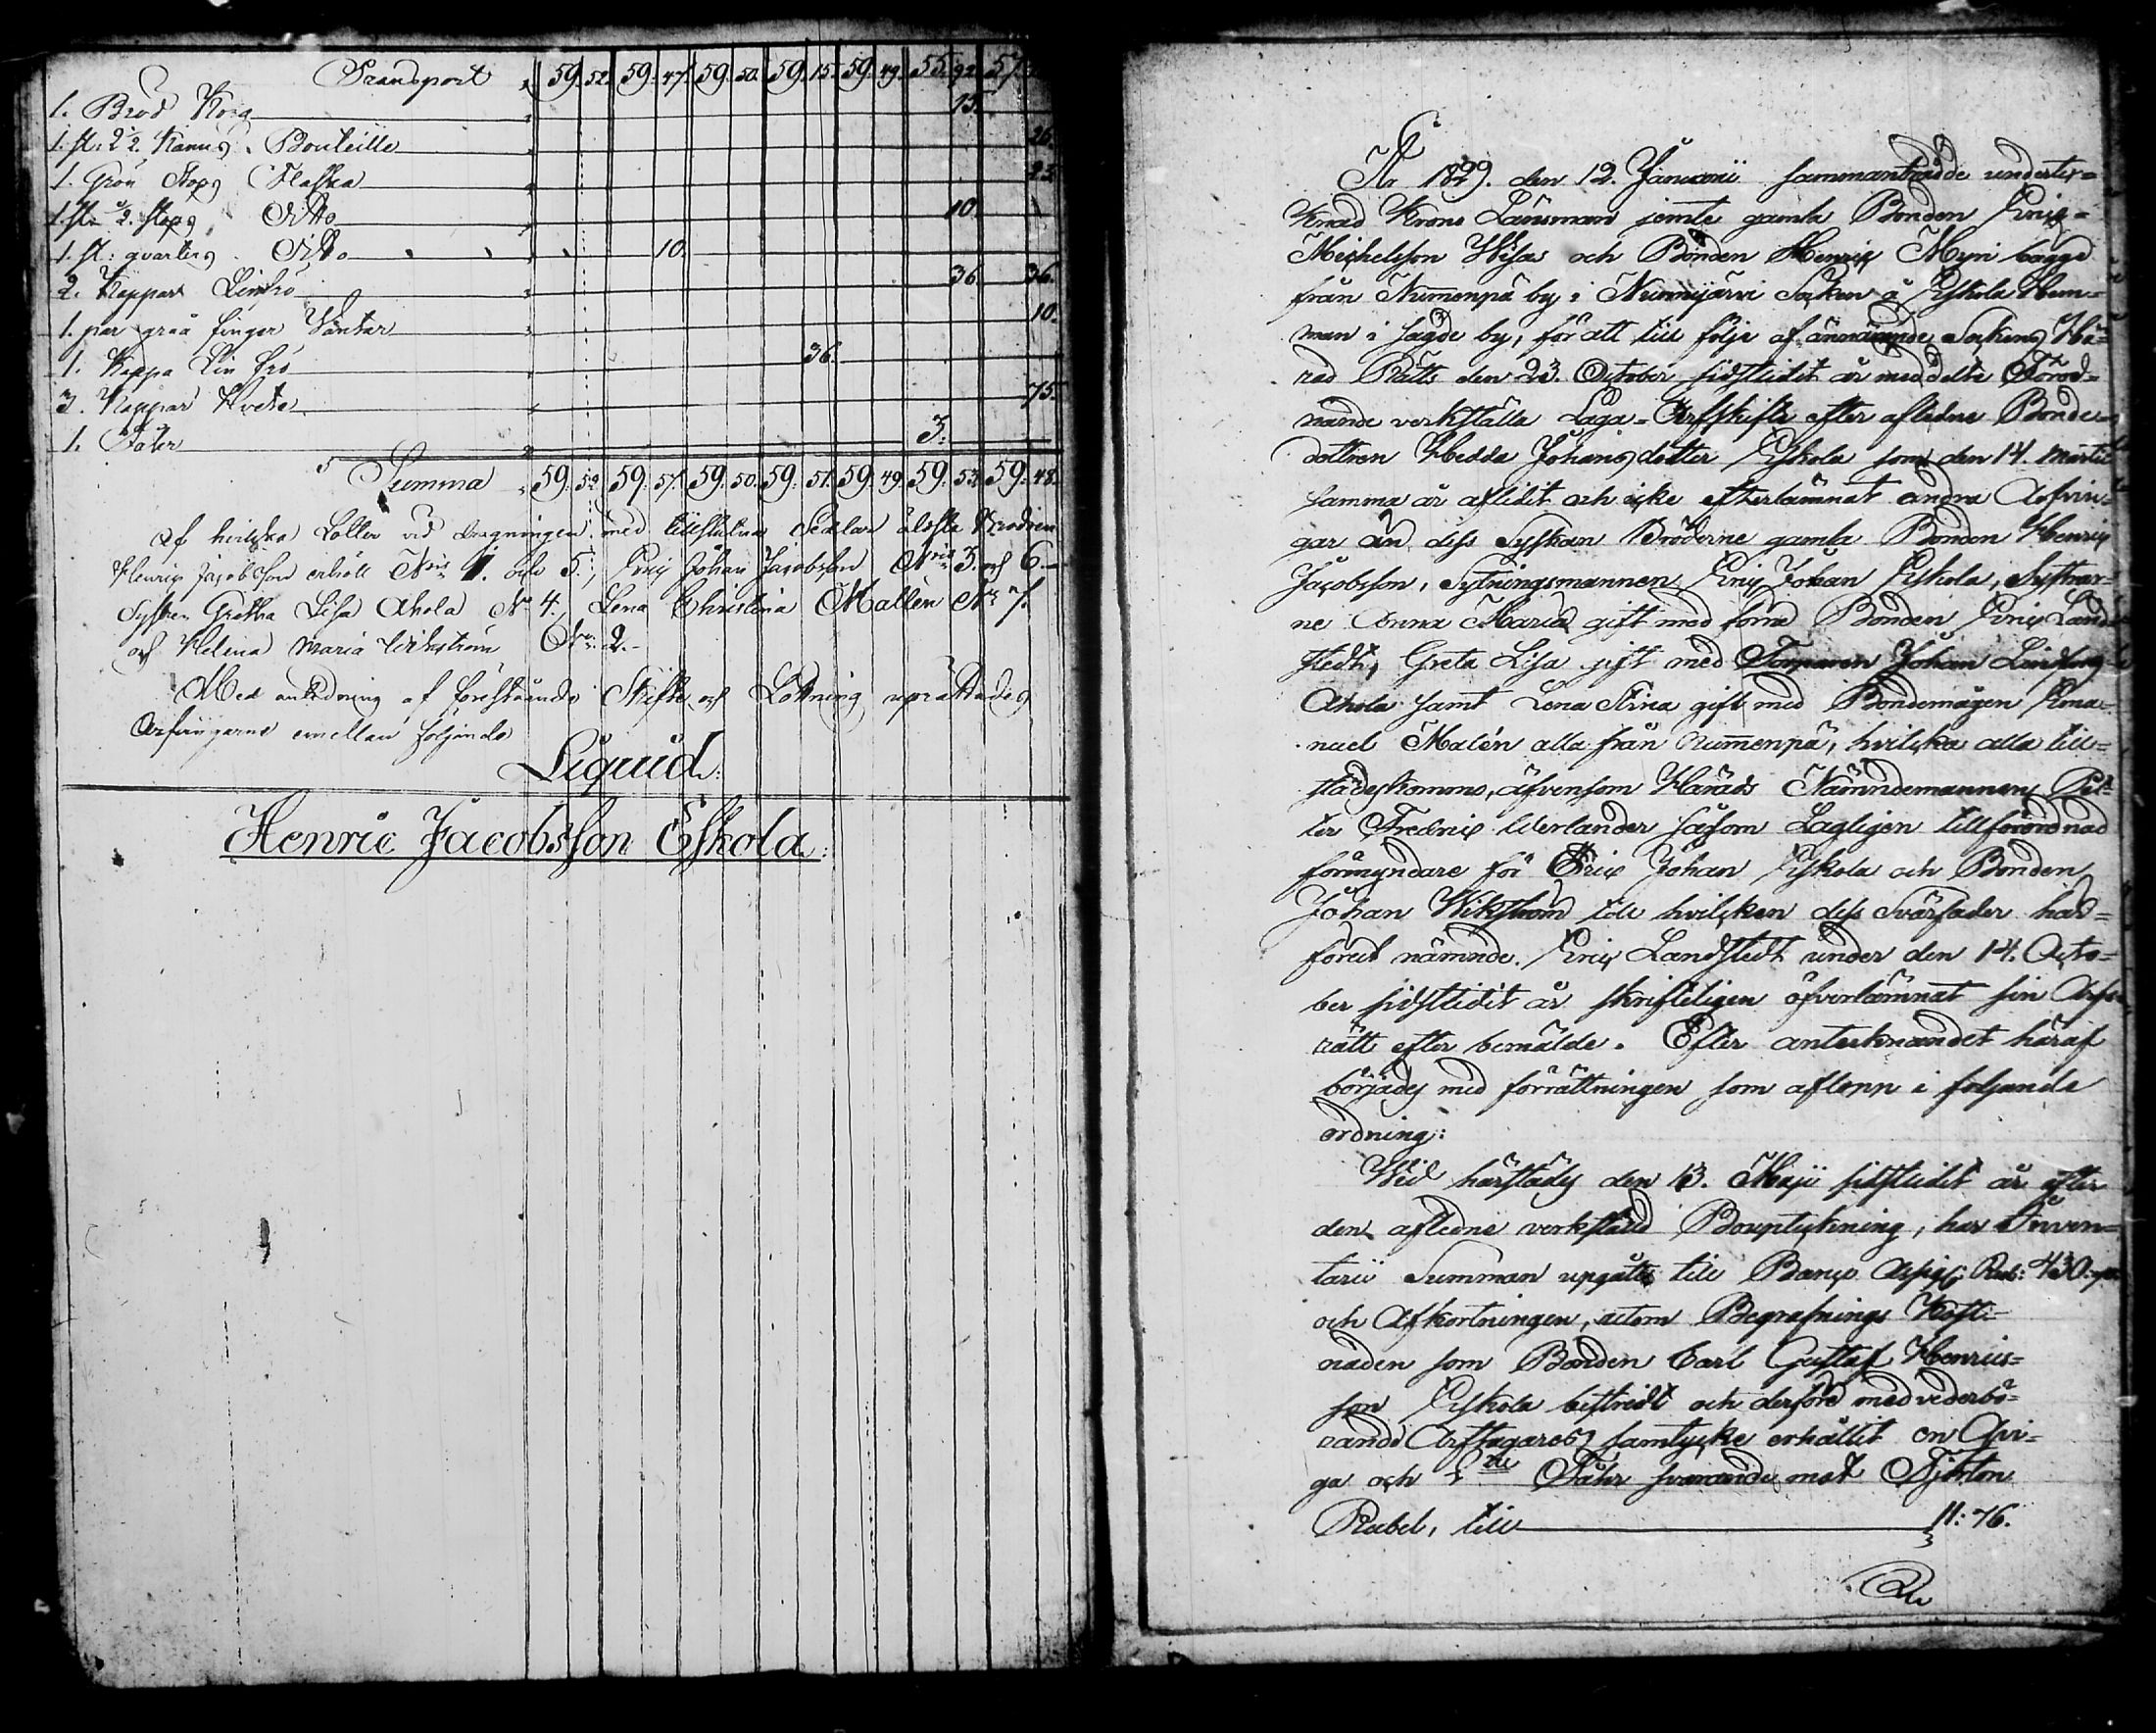 Transport 59. 52. 59. 47. 59. 50. 59. 15. 59. 49. 55. 92. 57.
1. Bröd Korg 15.
1. st. 2 1/2. Kanns Bouteille 26.
1. Grön Stops Flaska 23.
1. st. 1/2. stops Ditto 10.
1. st: qvarters Ditto 10.
2. Kappar Linfrö 36. 36.
1. par gråa finger Vantar 10.
1. Kappa Lin frö 36.
3. Kappar Hvete 75.
1. Fåter 3.
Summa 59. 52. 59. 57. 59. 50. 59. 51. 59. 49. 59. 53. 59. 48.
Af hvilka Lotter vid dragningen med tillslutna Sedlar äldste Brodren
Henric Jacobsson erhöll N:ris 1. och 5., Eric Johan Jacobsson N:ris 3. och 6.
Systren Gretha Lisa Ahola N:o 4., Lena Christina Mallen N:o 7.
och Helena Maria Wikström N:o 2.
Med anledning af förestående Skifte och Lottning uprättades
Arfvingarne emellan följande
Liquid.
Henric Jacobsson Eskola.
År 1829. den 12. Januarii sammanträdde underteck=
nad Krono Länsman jemte gamla Bonden Eric
Michelsson Wisas och Bonden Henric Myri bägge
från Nummenpä by i Nurmijärvi Socken å Eskola Hem=
man i sagde by, för att till följe af ännämnde Sockens Hä=
rad Rätts den 23. October sidstledit år meddelte Förord=
nande verkställa Laga Arfskifte efter aflidne Bonde=
dottren Hedda Johans dotter Eskola som den 14. Martii
samma år aflidit och icke efterlämnat andra Arfvin=
gar än dess Syskon Bröderne gamla Bonden Henric
Jacobsson, Sytningsmannen Eric Johan Eskola, Systrar=
ne Anna Maria gift med förne Bonden Eric Land=
stedt, Greta Lisa gift med Torparen Johan Lindfors
Ahola samt Lena Stina gift med Bondemågen Ema=
nuel Malén alla från Nummenpä, hvilka alla till=
städeskommo, äfvensom Härads Nämndemannen Pet=
ter Fredric Werlander såsom Lagligen tillförordnad
förmyndare för Eric Johan Eskola och Bonden
Johan Wikström till hvilken dess Svärfader här=
förut nämnde Eric Landstedt under den 14. Octo=
ber sidstledit år skrifteligen öfverlämnat sin Arfs
rätt efter bemälde. Efter antecknandet häraf
börjades med förrättningen som aflopp i följande
ordning:
Wid härstädes den 13. Maji sidstledit år efter
den aflidne verkställd Bouptekning, har Inven=
tarii Summan upgått till Banco Assign. Rub: 430.
och Afkortningen, utom Begrafnings Kost=
naden som Bonden Carl Gustaf Henrics=
son Eskola bestridt och derföre med vederbö=
rande Arftagares samtycke erhållit en Qvi=
ga och Fåhr svarande mot Fjorton
Rubel, till 11: 76.